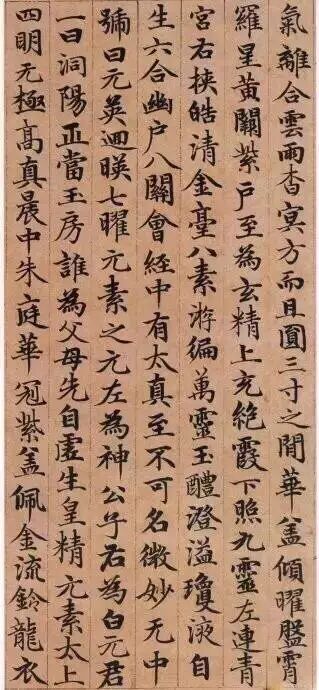 氣離合雲雨杳冥方而且圓三寸之閒華盖傾曜鬱霄
羅星黃闕紫戶至為玄精上充絶霞下照九靈左連青
宮右挾皓清金臺八素遊編萬靈玉醴澄溢瓊液自
生六合幽戶八關會經中有太真至不可名微妙无中
號曰元英迴暎七曜元素之元左為神公子右為白元君
一曰洞陽正當玉房誰為父母先自虛生皇精元素太上
四明无極高真晨中朱庭華冠紫盖佩金流鈴龍衣